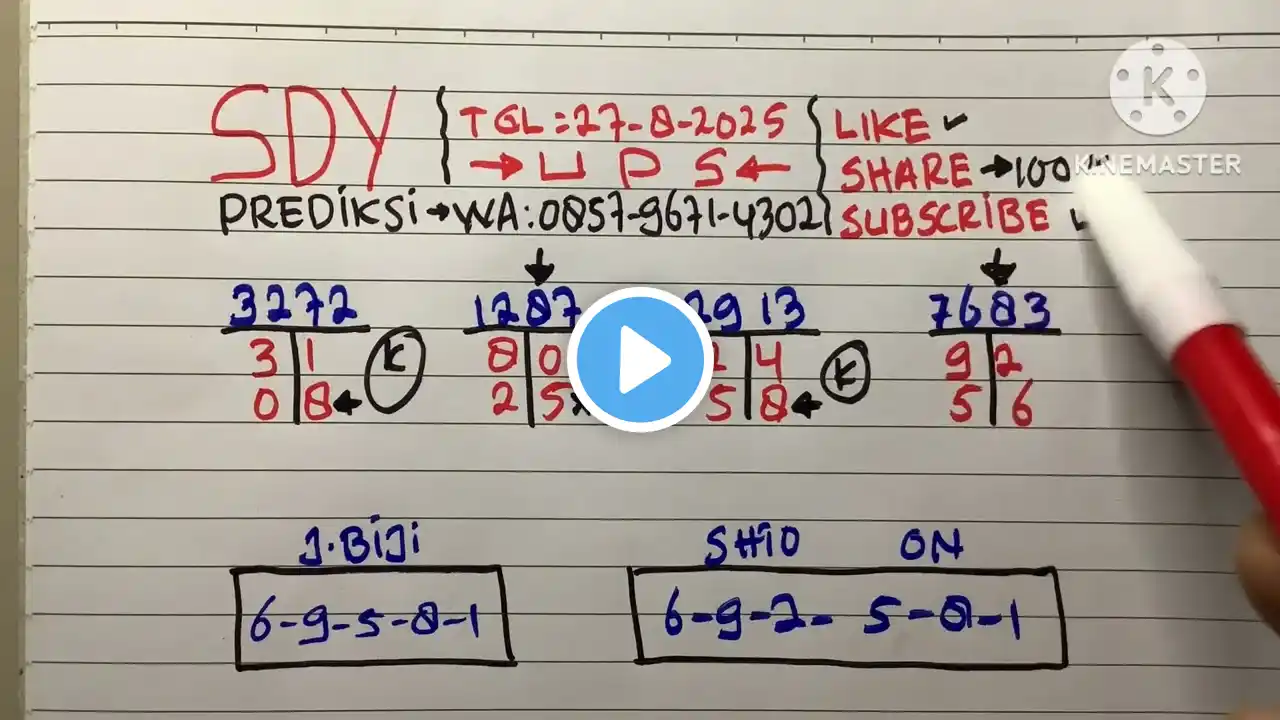 SDY
TGL:27-8-2025
→ U P S ←
LIKE ✓
SHARE → 100
SUBSCRIBE ✓
KINEMASTER
PREDIKSI → WA:0857-9671-4302
3272
3 1
0 8 ←
K
1287
8 0
2 5
2913
4
5 8 ←
K
7683
9 2
5 6
J.BIJI
6-9-5-8-1
SHIO ON
6-9-2- 5-8-1